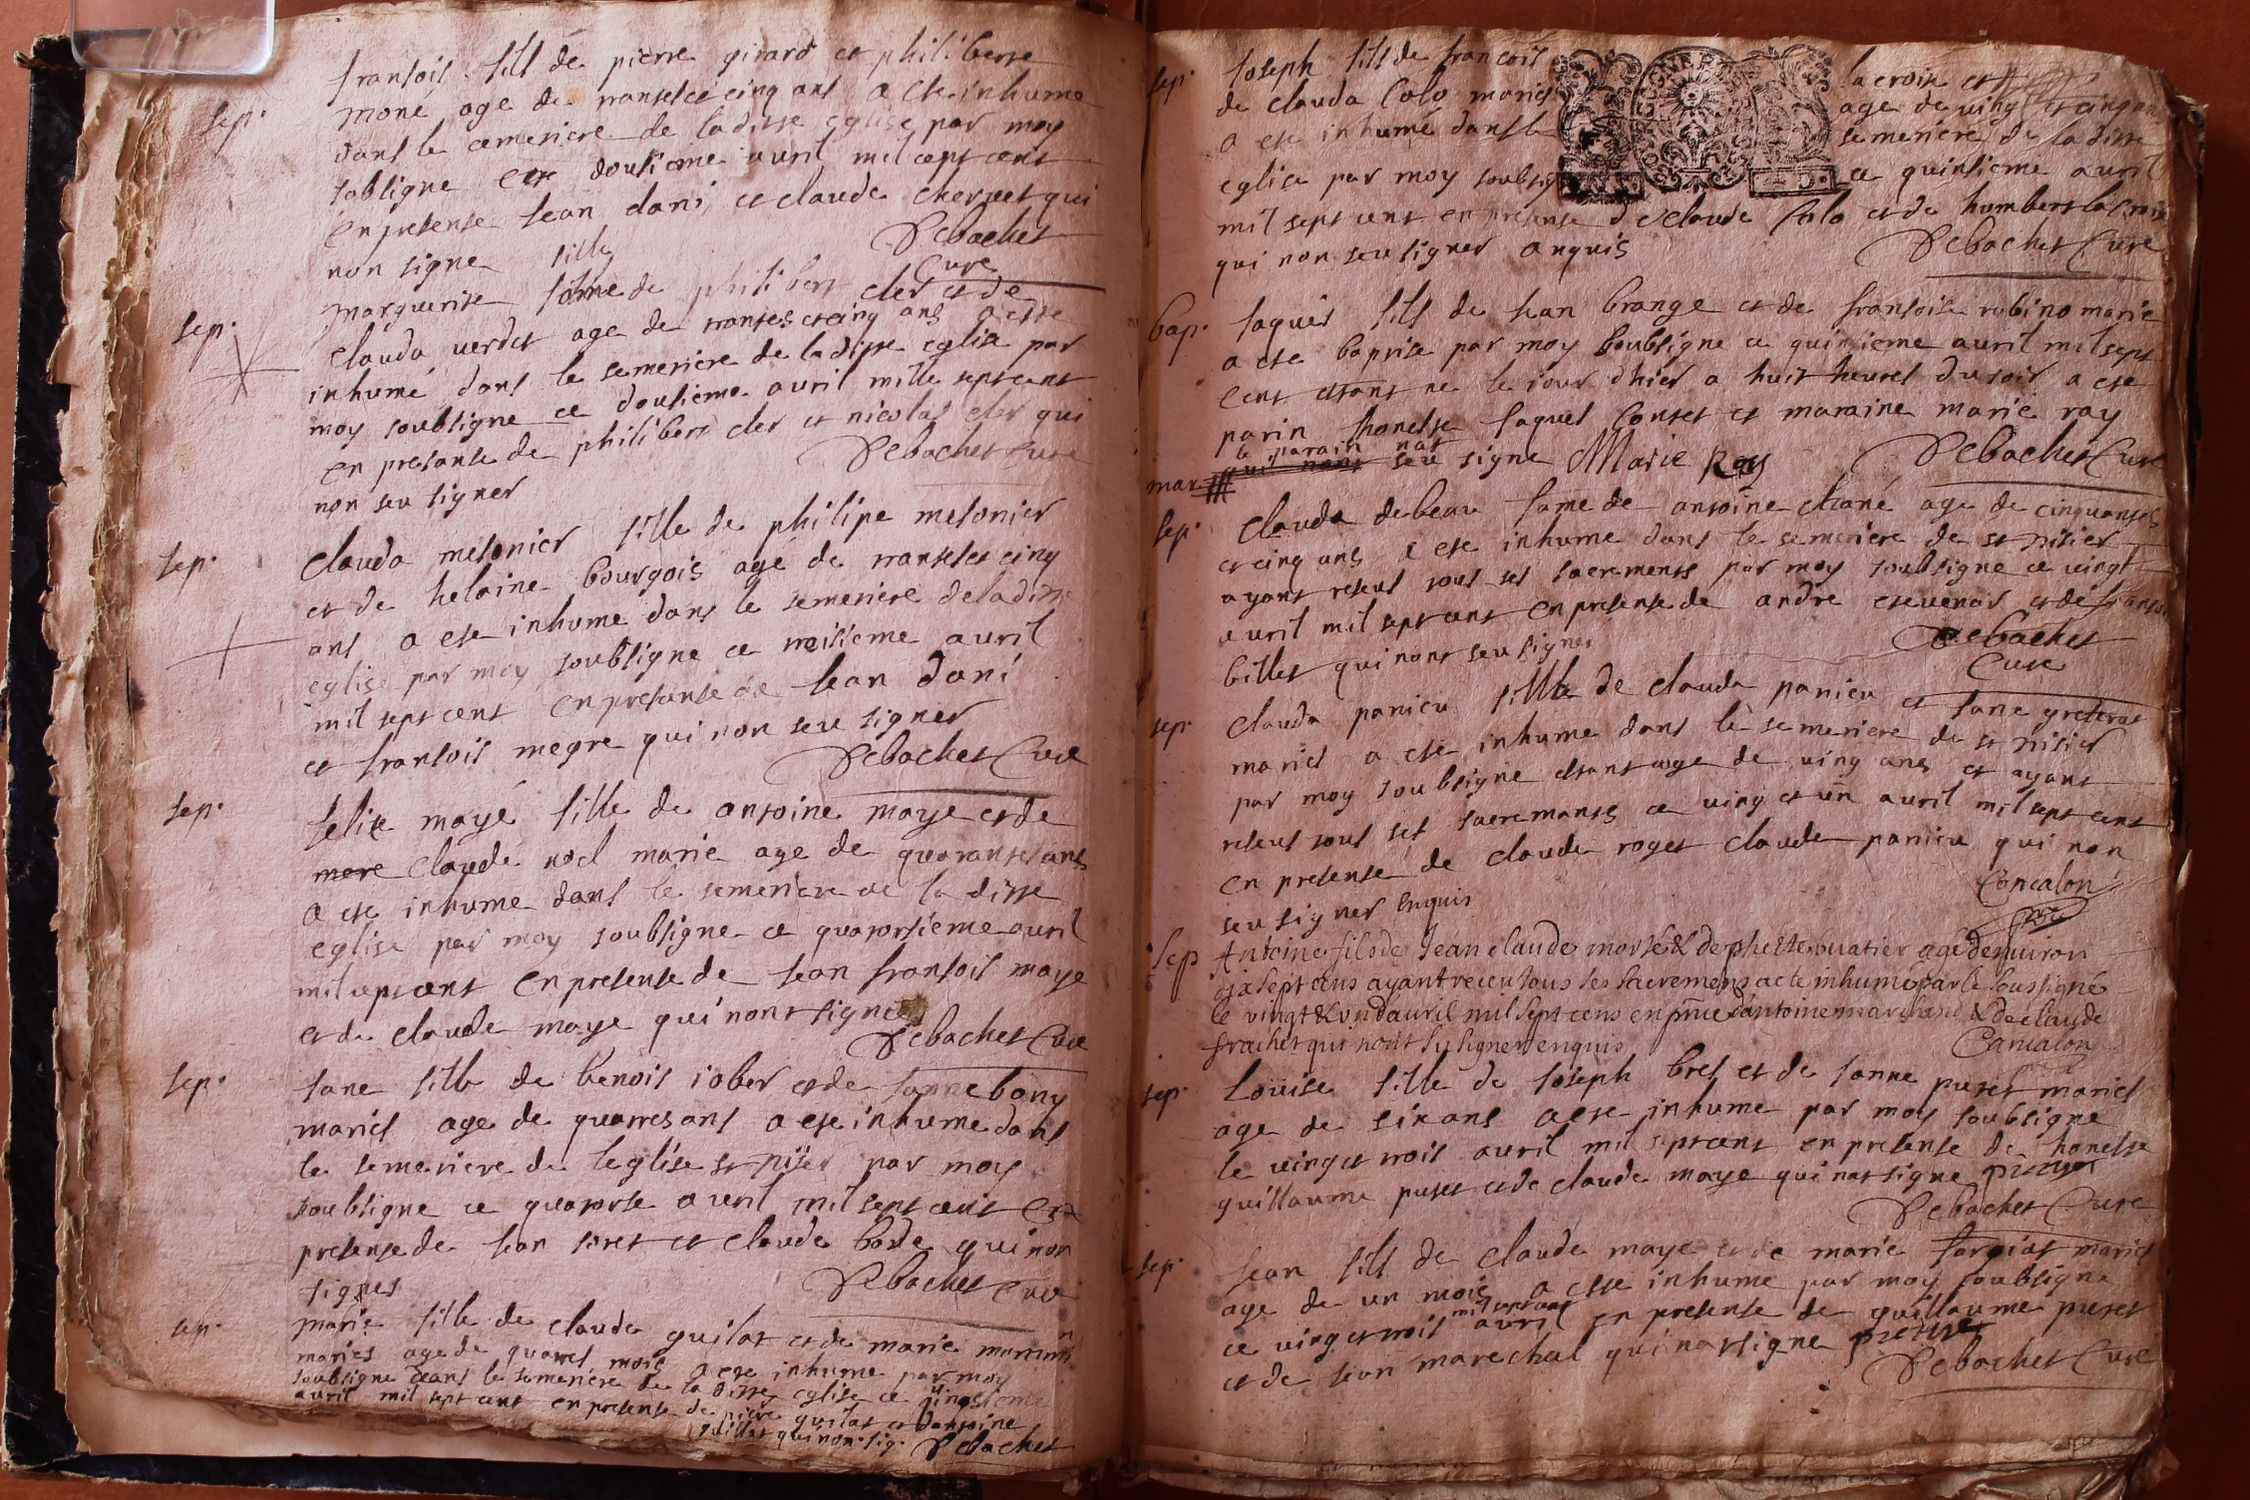 sep.
fransois fills de pierre girard et philiberte
moné age de trantes et cinq ans a este inhume
dans le cemetiere de la ditte eglise par moy
sobligne ce doutieme avril mil cept cent
en presense Jean dani et claude chervet qui
non signe
Debochet
Cure
sep.
fille
marguerite fame de philibert cler et de
clauda verdet age de trantes et cinq ans a este
inhumé dans le semetiere de la ditte eglise par
moy soubsigne ce doutieme avril mille sept cent
en presante de philibert cler et nicolas cler qui
non seu signer
Debochet Cure
sep.
clauda metonier fille de philipe metonier
et de helaine bourgois agé de trantes et cinq
ans a este inhume dans le semetiere de la ditte
eglise par moy soubsigne ce troisieme avril
mil sept cent en presante de Jean dani
et fransois megre qui non seu signer
Debochet Cure
sep.
felise mayé fille de antoine maye et de
mere claude noel marié age de quarantes ans
a este inhume dans le semetiere de la ditte
eglise par moy soubsigne ce quatorsieme avril
mil cept cent en presense de Jean fransois maye
et de claude maye qui nont signe
Debochet Cure
sep.
Jane fille de benois iober et de Janne bony
mariés age de quattres ans a este inhume dans
le semetiere de leglise st nisier par moy
soubsigne ce quatorse avril mil sept cent en
presense de Jean et claude bode qui non
signes
Debochet Cure
sep.
marie fille de claude guilot et de marie
maries age de quattres mois a este inhume par moy
soubsigne dans le semetiere de la ditte eglise ce
avril mil sept cent en presense de piere guilot et d'antoine
guillot qui non sig. Debochet
sep.
Joseph fill de francois la croix et
de clauda Colo mariés age de ving et cinq ans
a este inhumé dans le semetiere de la ditte
eglise par moy soubsig ce quinsieme avril
mil sept cent en presense de claude Colo et de humbert la croix
qui non seu signer anquis
Debochet Cure
bap.
Jaques fill de Jean brange et de fransoise rubino marié
a este baptise par moy soubsigne ce quinsieme avril mil sept
cent estant ne le iour dhier a huit heures du soir a este
parin honeste Jaques Contet et maraine marie ray
le parain nat
seu signe Marie Ray
Debochet Cure
mar
sep.
clauda debeau fame de antoine chané age de cinquantes
et cinq ans a este inhume dans le semetiere de st nisier
ayant reseus tous ses sacrements par moy soubsigne ce vingt
avril mil sept cent en presense de andre estevenot et de frans
billet qui nont seu signer
Debochet
Cure
sep.
clauda panieu fille de claude panieu et Jane
mariés a este inhume dans le semetiere de st nisier
par moy soubsigne estant age de ving ans et ayant
reseus tous ses sacremants ce ving et un avril mil sept cent
en presense de claude roget claude panieu qui non
seu signer enquis
Concalon
Sep
Antoine fils de Jean claude morel & de phi age denuiron
dix sept ans ayant receu tous ses sacremens a ete inhumé par le soussigné
le vingt & un dauril mil sept cens en pnce d'antoine marchand & de claude
frachet qui n'ont sy signer enquis
Cancalon
sep.
Louise fille de Joseph bret et de Janne puret mariés
age de six ans a este inhume par moy soubsigne
le ving et trois avril mil sept cent en presense de honeste
guillaume puret et de claude maye qui nat signe
Debochet Cure
sep.
Jean fill de claude maye et de marie mariés
age de un mois a este inhume par moy soubsigne
mil sept cent
ce ving et trois avril en presense de guillaume puret
et de Jean marechal qui nat signe
Debochet Cure